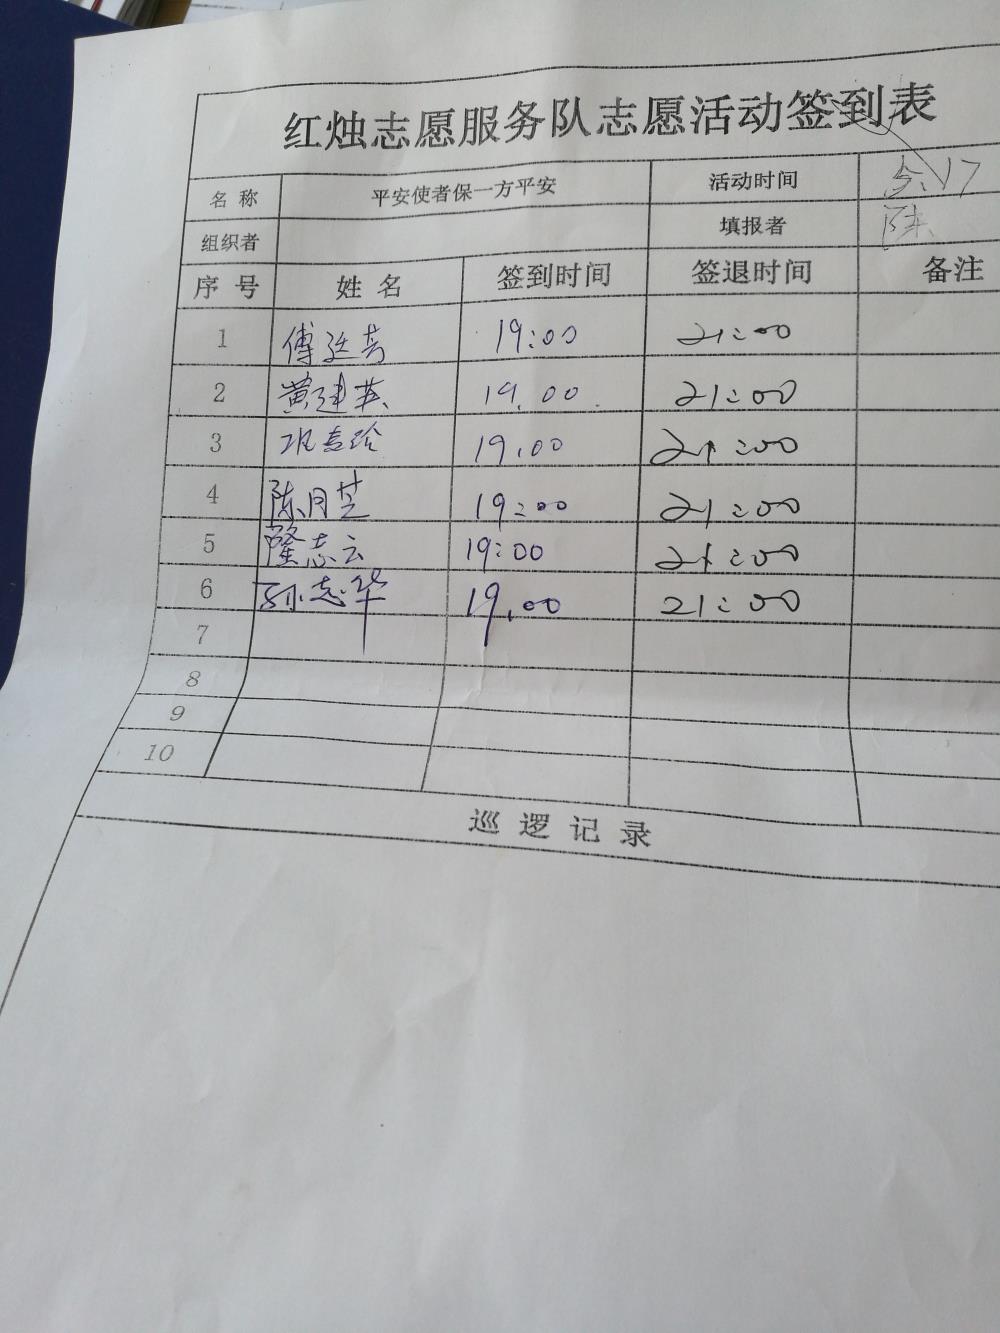 红烛志愿服务队志愿活动签到表
名 称 平安使者保一方平安 活动时间 17
组织者 填报者 陈
序 号 姓 名 签到时间 签退时间 备注
1 傅廷芳 19:00 21:00
2 黄建英 19.00 21:00
3 19.00 21:00
4 陈月芝 19:00 21:00
5 隆志云 19:00 21:00
6 孙志华 19.00 21:00
7
8
9
10
巡 逻 记 录